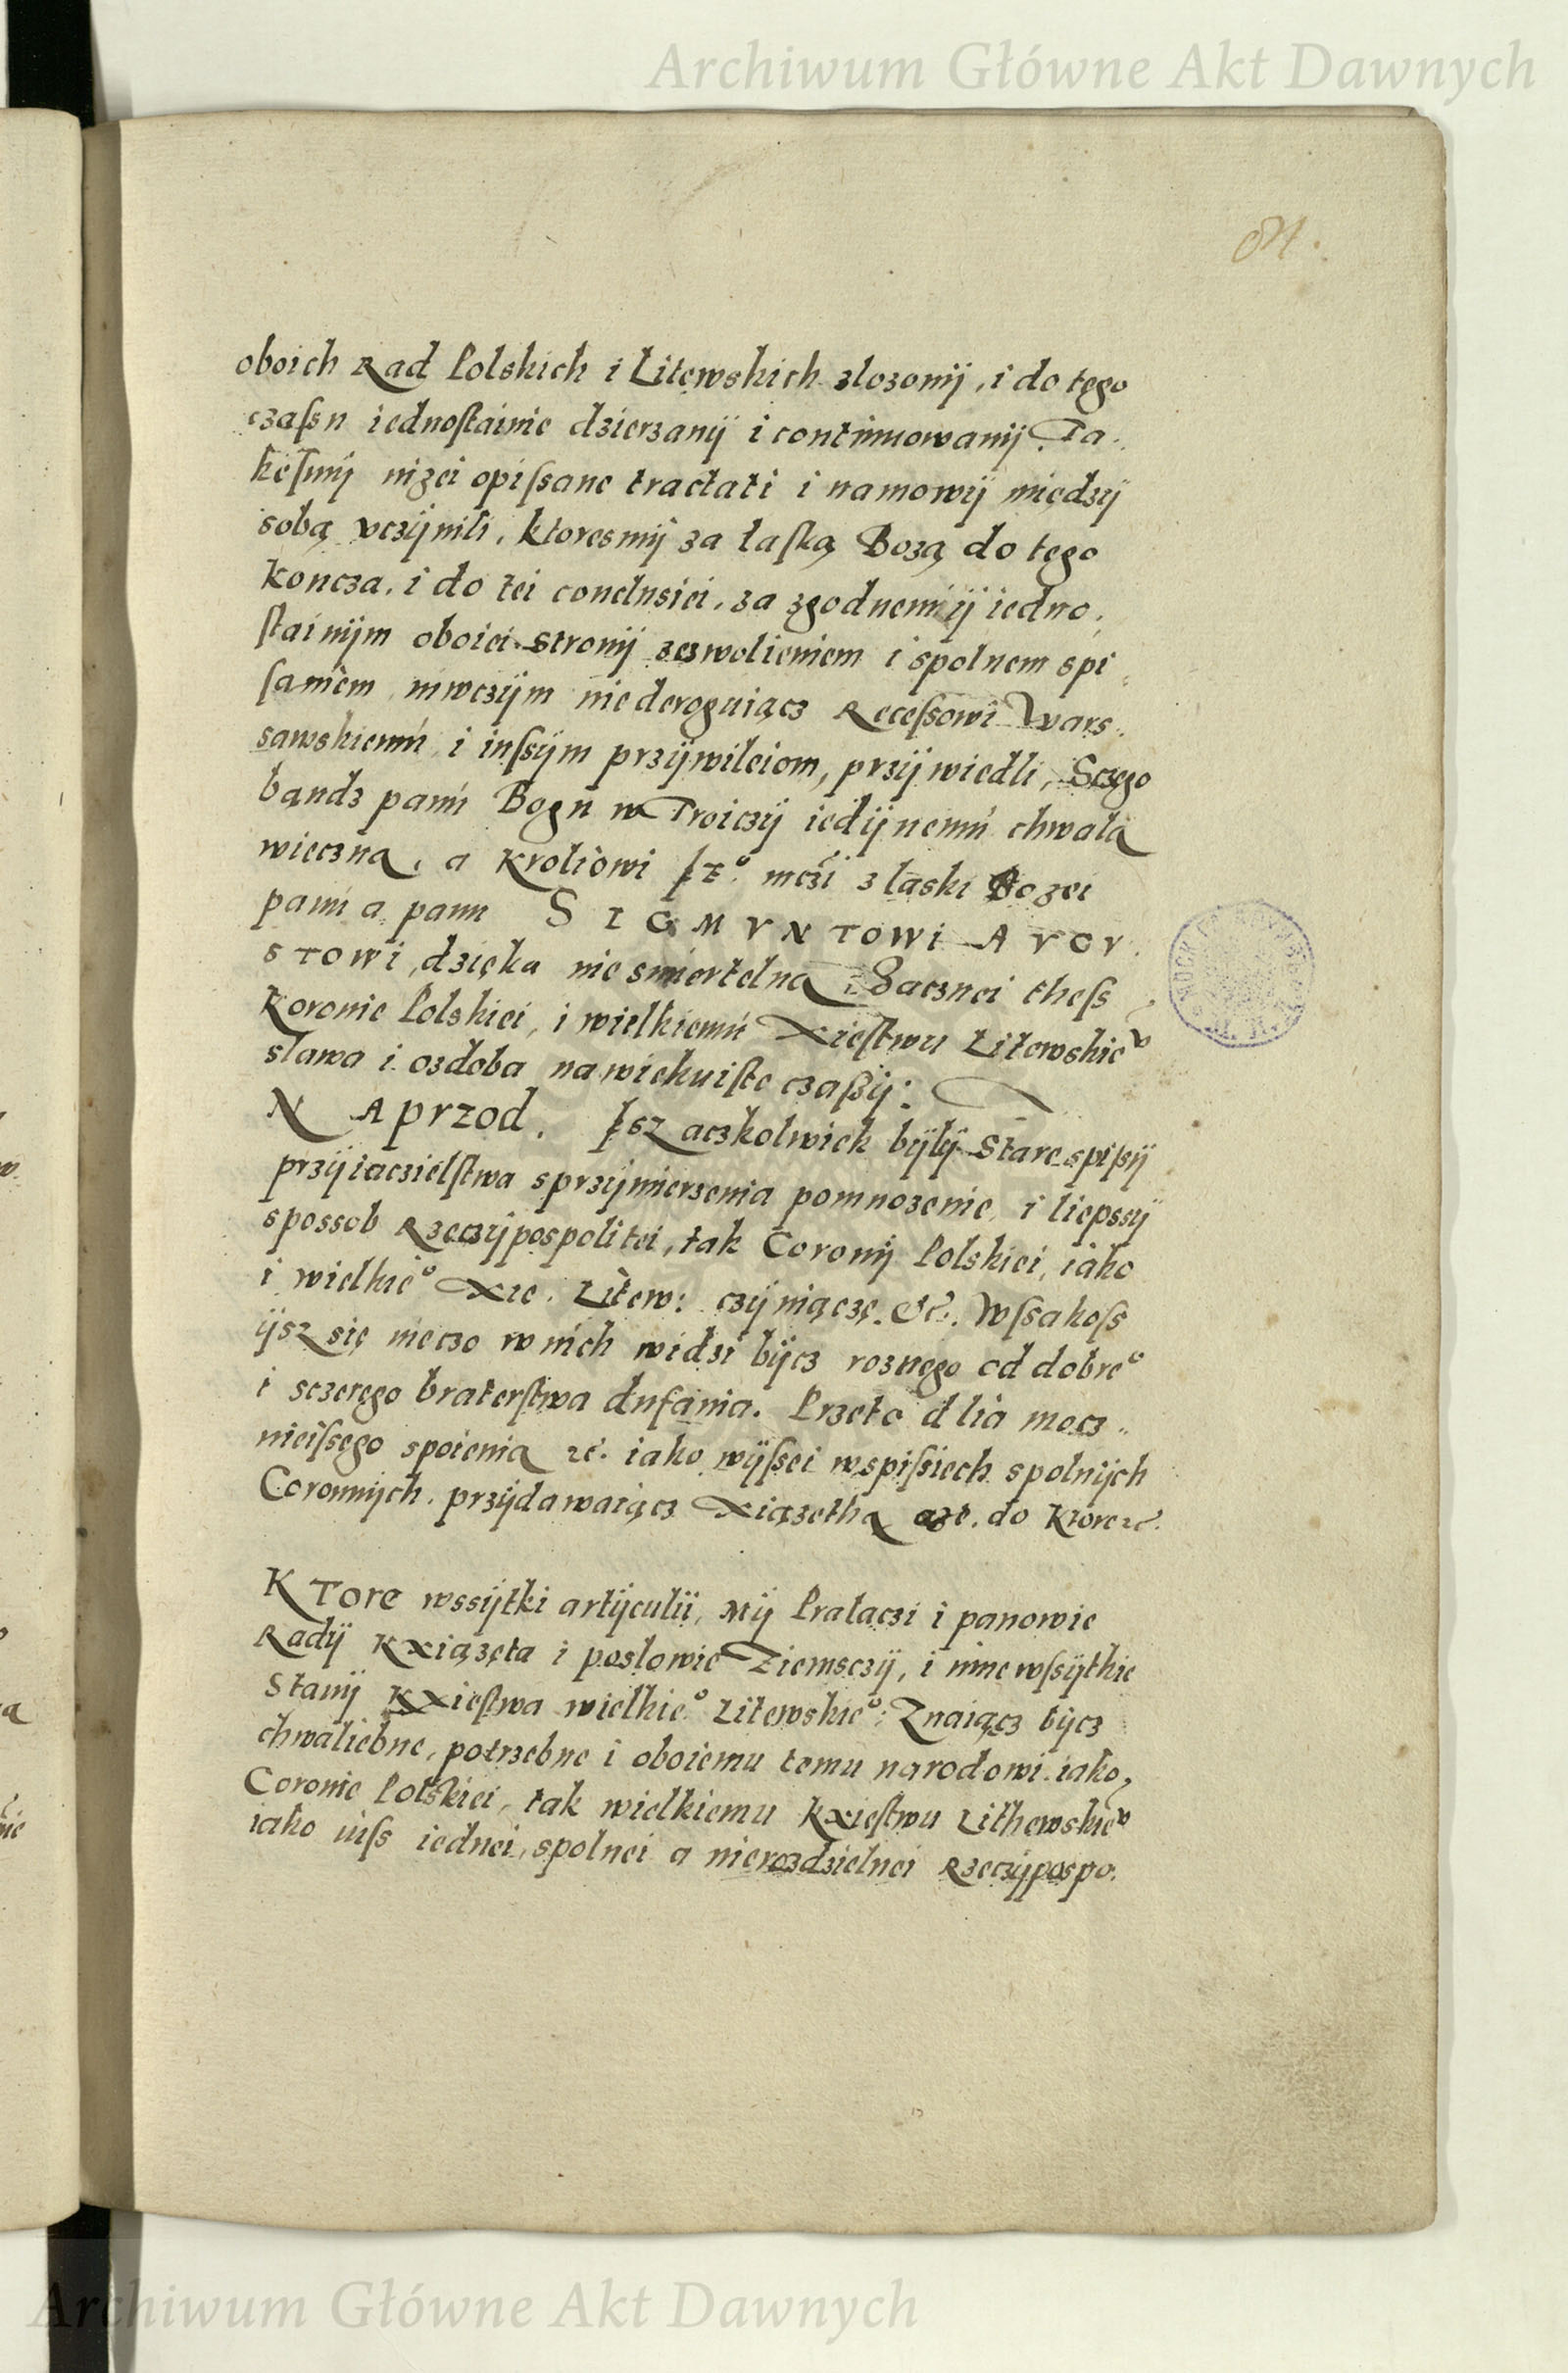 Archiwum Główne Akt Dawnych
oboich Rad Polskich i Litewskich zlozonÿ, i do tego
czaſsu iednoſtainie dzierzanÿ i continuowanÿ. Ta.
keſmÿ nizei opiſsane tractati i namowÿ międzÿ
sobą vczÿnili, ktoresmÿ za łaſką Bozą do tego
koncza, i do tei conclusiei, za zgodnemÿ iedno,
ſtainÿm oboiei stronÿ zezwolieniem i spolnem spi,
ſaniem niwczÿm niederoguiącz Receſsowi Wars.
sawskiemu i inſsÿm przÿwileiom, przÿwiedli, Sczego
bandz panu Bogu w Troiczÿ iedÿnemu chwała
wieczna, a Kroliowi Iz.º mczi z laski Bozei
panu a panu SIGMVNTOWI AVGV.
STOWI, dzięka niesmiertelna, Zacznei theſs
Koronie Polskiei, i wielkiemu Xieſtwu Litewskieᵛ
slawa i ozdoba nawiekuiſte czaſzÿ:
NAprzod. Isz aczkolwiek bÿlÿ Stare spiſzÿ
przÿiaczielſtwa sprzÿmierzenia pomnozenie, i liepssÿ
spossob Rzeczÿpospolitei, tak Coronÿ Polskiei, iako
i wielkieº Xie. Litew: czÿniącze. &c. Wſsakoſs
ÿsz się nieczo w nich widzi bÿcz roznego od dobreº
i sczerego braterſtwa dufania. Przeto dlia mocz..
nieiſsego spoienia ꝛc. iako wÿſsei wspiſsiech spolnÿch
Coronnÿch. przÿdawaiącz Xiązetha aze. do Ktore ꝛc.
KTore wssÿtki artÿculÿ, MÿPralaczi i panowie
Radÿ Kxiązęta i poslowie Ziemsczÿ, i inne wſsÿtkie
Stanÿ Kxieſtwa wielkieº Litewskieº: Znaiącz bÿcz
chwaliebne, potrzebne i oboiemu temu narodowi iako,
Coronie Polskiei, tak wielkiemu Kxieſtwu Lithewskieᵛ
iako iuſs iednei, spolnei a nierozdzielnei Rzeczÿpospo.
Archiwum Główne Akt Dawnych